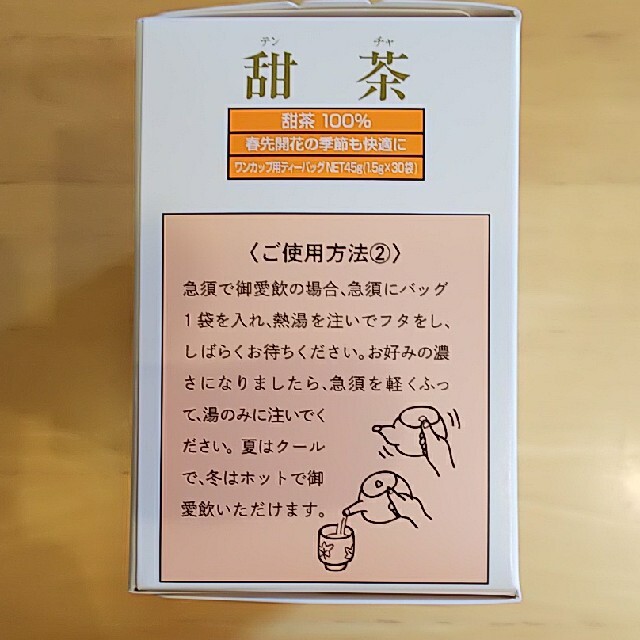 テン チャ
甜 茶
甜茶 100%
春先開花の季節も快適に
ワンカップ用ティーバッグNET45g(1.5g×30袋)
〈ご使用方法②〉
急須で御愛飲の場合、急須にバッグ
1袋を入れ、熱湯を注いでフタをし、
しばらくお待ちください。お好みの濃
さになりましたら、急須を軽くふっ
て、湯のみに注いでく
ださい。夏はクール
で、冬はホットで御
愛飲いただけます。